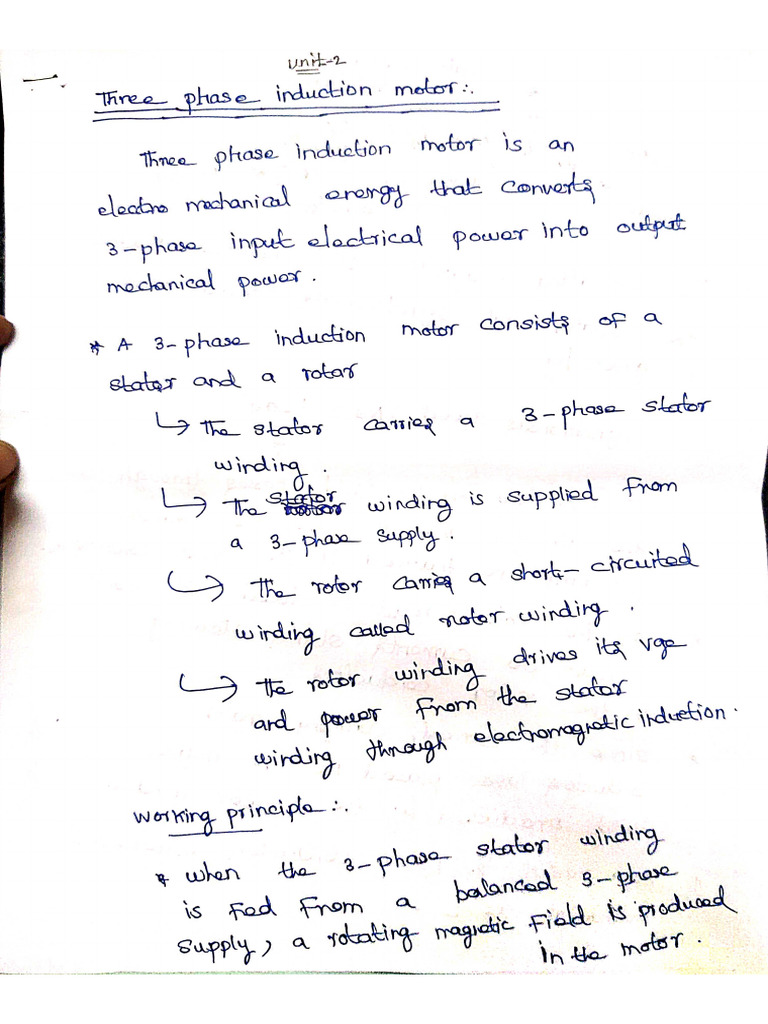 Unit-2
Three phase induction motor:.
Three phase induction motor is an
electro mechanical energy that converts
3-phase input electrical power into output
mechanical power.
* A 3-phase induction motor consists of a
stator and a rotar
↳ The stator carries a 3-phase stator
winding.
↳ The stator winding is supplied from
a 3-phase supply.
↳ The rotor carries a short-circuited
winding called rotor winding.
↳ The rotor winding drives its vge
and power from the stator
winding through electromagnetic induction.
working principle:.
* when the 3-phase stator winding
is Fed From a balanced 3-phase
supply, a rotating magnetic Field is produced
in the motor.